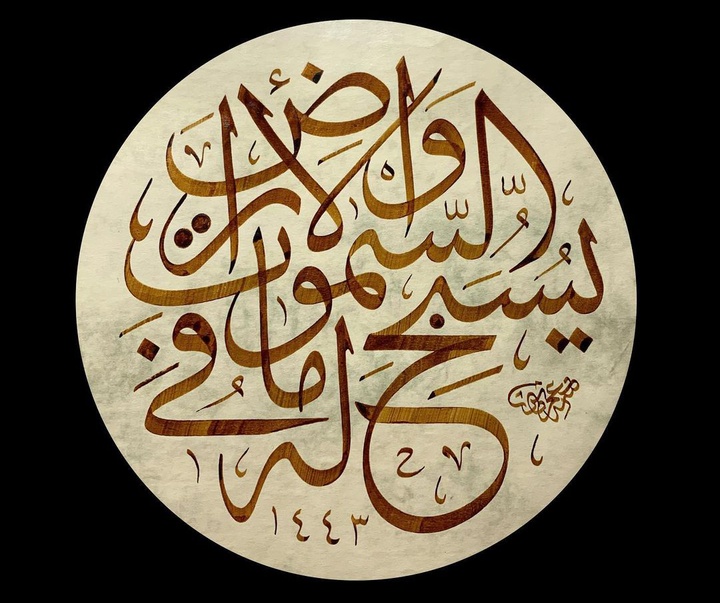 يسبح له ما في السموات والأرض
١٤٤٣